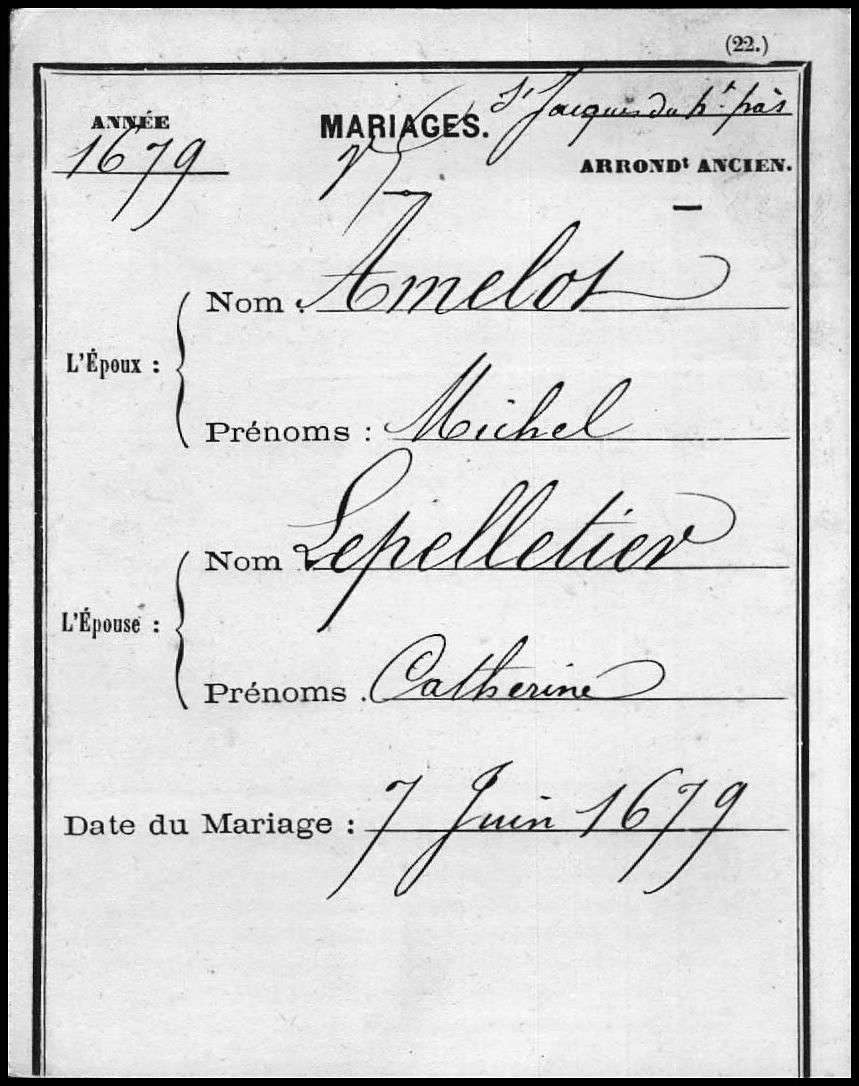 (22.)
ANNÉE
1679
MARIAGES.
St Jacques du ht pas
ARRONDt ANCIEN.
L'Époux :
Nom : Amelot
Prénoms : Michel
L'Épouse :
Nom : Lepelletier
Prénoms : Catherine
Date du Mariage : 7 Juin 1679